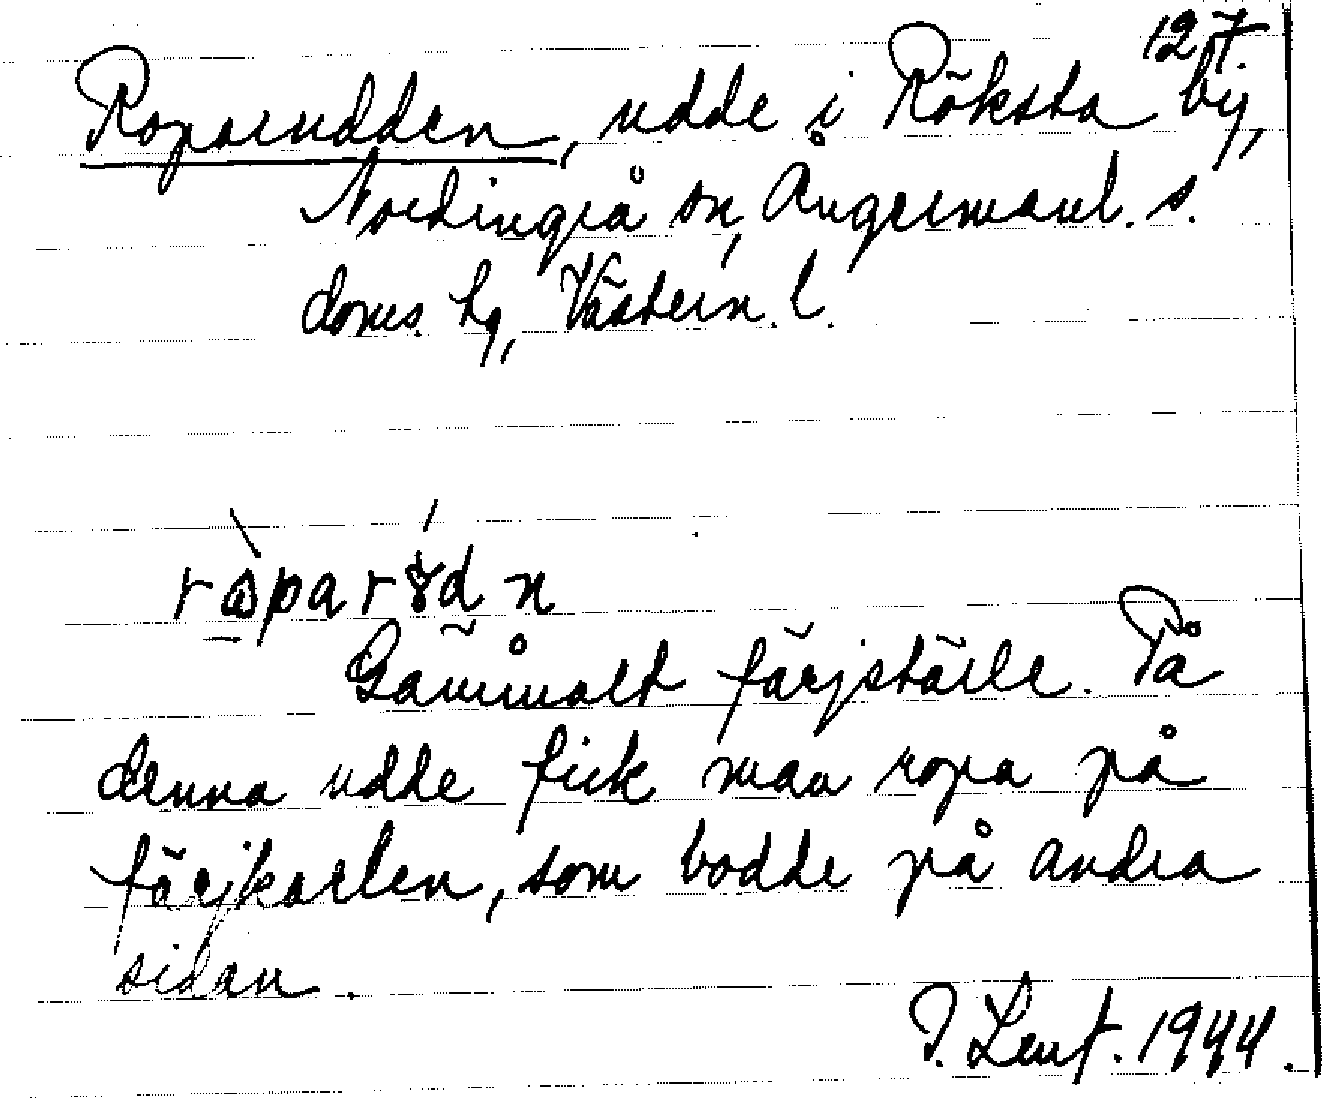 127.
Roparudden, udde i Röksta by,
Nordingrå sn, Ångermanl. s.
doms. hg, Västern. l.
Gammalt färjställe. På
denna udde fick man ropa på
färjkarlen, som bodde på andra
sidan.
1944.